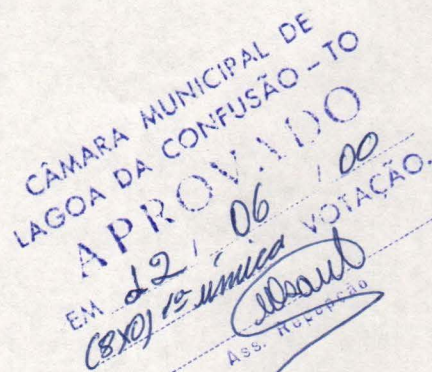 CÂMARA MUNICIPAL DE
LAGOA DA CONFUSÃO - TO
APROVADO
EM 22 / 06 / 00
(8X0) 1ª única VOTAÇÃO.
Ass. Recepção